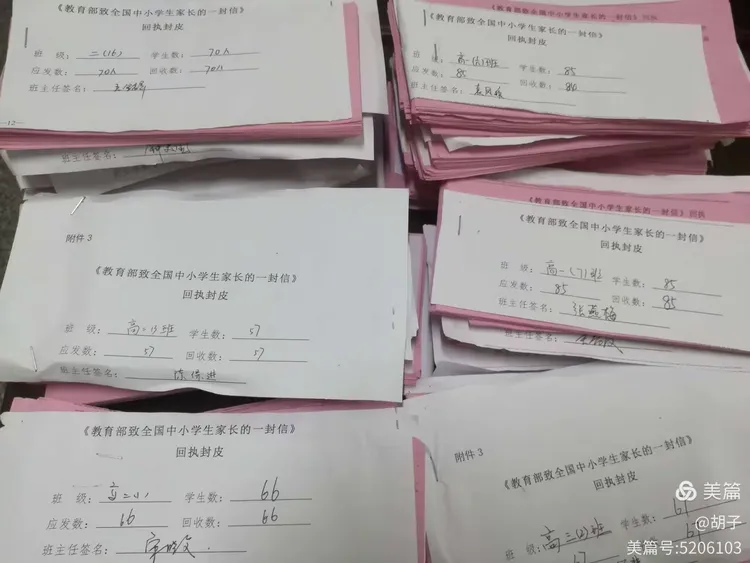 《教育部致全国中小学生家长的一封信》
回执封皮
班 级：二(16) 学生数：70人
应发数：70人 回收数：70人
班主任签名：
—12—
班主任签名：
《教育部致全国中小学生家长的一封信》回执
《教育部致全国中小学生家长的一封信》
回执封皮
班 级： 学生数：85
应发数：85 回收数：
班主任签名：
附件 3
《教育部致全国中小学生家长的一封信》
回执封皮
班 级： 学生数：57
应发数：57 回收数：57
班主任签名：
《教育部致全国中小学生家长的一封信》回执
《教育部致全国中小学生家长的一封信》
回执封皮
班 级：高一(7)班 学生数：85
应发数：85 回收数：85
班主任签名：张燕梅
班主任签名：
《教育部致全国中小学生家长的一封信》
回执封皮
班 级： 学生数：66
应发数：66 回收数：66
班主任签名：
附件 3
《教育部致全国中小学生家长的一封信》
回执封皮
班 级：高二(2)班 学生数：67
67 67
美篇
@胡子
美篇号:5206103